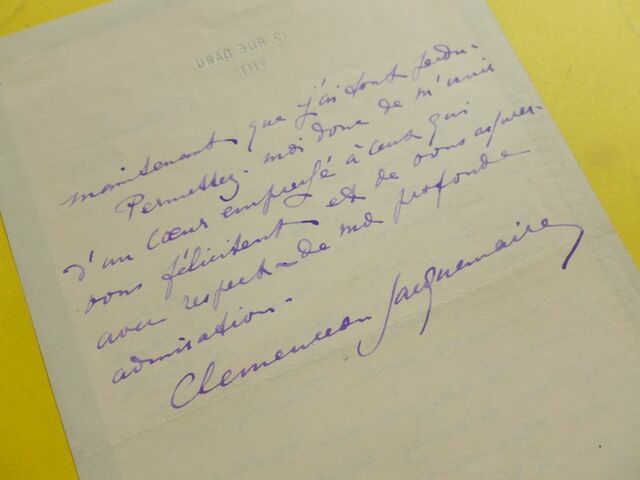 18 RUE DARU
VIII
maintenant que j'ai tout perdu.
Permettez-moi donc de m'unir
d'un cœur empressé à ceux qui
vous félicitent et de vous assurer
avec respect de ma profonde
admiration.
Clemenceau Jacquemaire